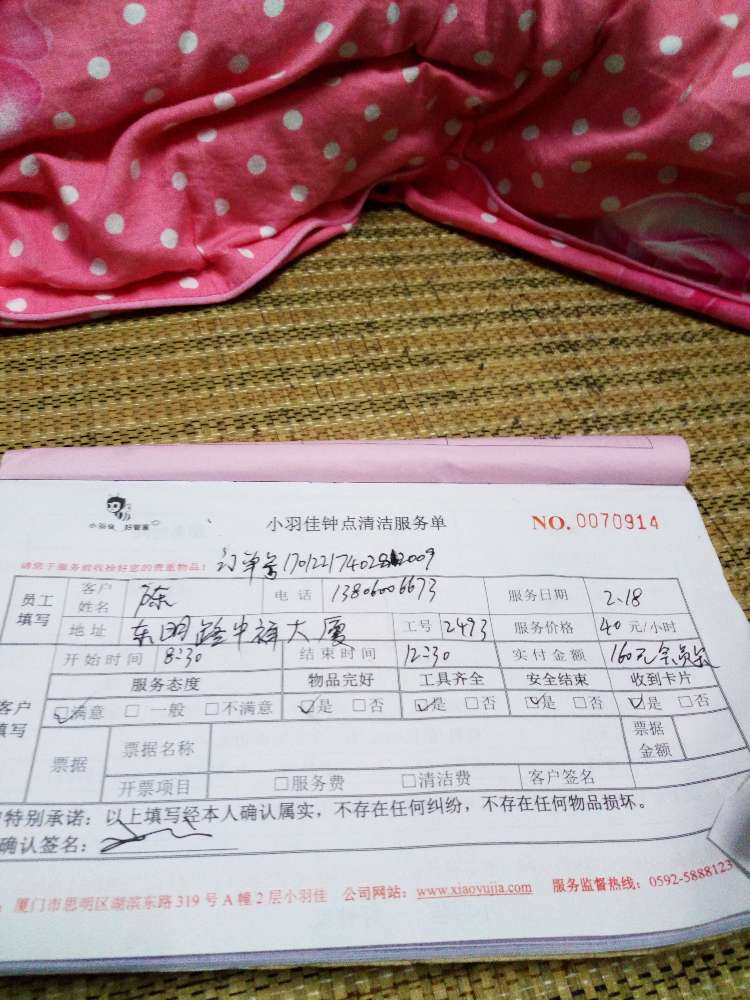 小羽佳 好管家
小羽佳钟点清洁服务单
NO. 0070914
请您于服务前收捡好您的贵重物品!
订单号
员工填写 客户姓名 陈 电话 13806006673 服务日期 2.18
地址 东明路中祥大厦 工号 2493 服务价格 40 元/小时
开始时间 8:30 结束时间 12:30 实付金额 160元会员
客户填写 服务态度 物品完好 工具齐全 安全结束 收到卡片
☑满意 □一般 □不满意 ☑是 □否 ☑是 □否 ☑是 □否 ☑是 □否
票据 票据名称 票据金额
开票项目 □服务费 □清洁费 客户签名
户特别承诺:以上填写经本人确认属实,不存在任何纠纷,不存在任何物品损坏。
确认签名:
:厦门市思明区湖滨东路319号A幢2层小羽佳 公司网站:www.xiaoyujia.com 服务监督热线:0592-5888123